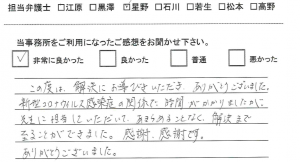 担当弁護士 □江原 □黒澤 ☑星野 □石川 □若生 □松本 □高野
当事務所をご利用になったご感想をお聞かせ下さい。
☑ 非常に良かった □ 良かった □ 普通 □ 悪かった
この度は、解決にお導びきいただき ありがとうございました。
新型コロナウイルス感染症の関係で、時間がかかりましたが、
先生に担当していただいて、あきらめることなく、解決まで
至ることができました。感謝、感謝です。
ありがとうございました。